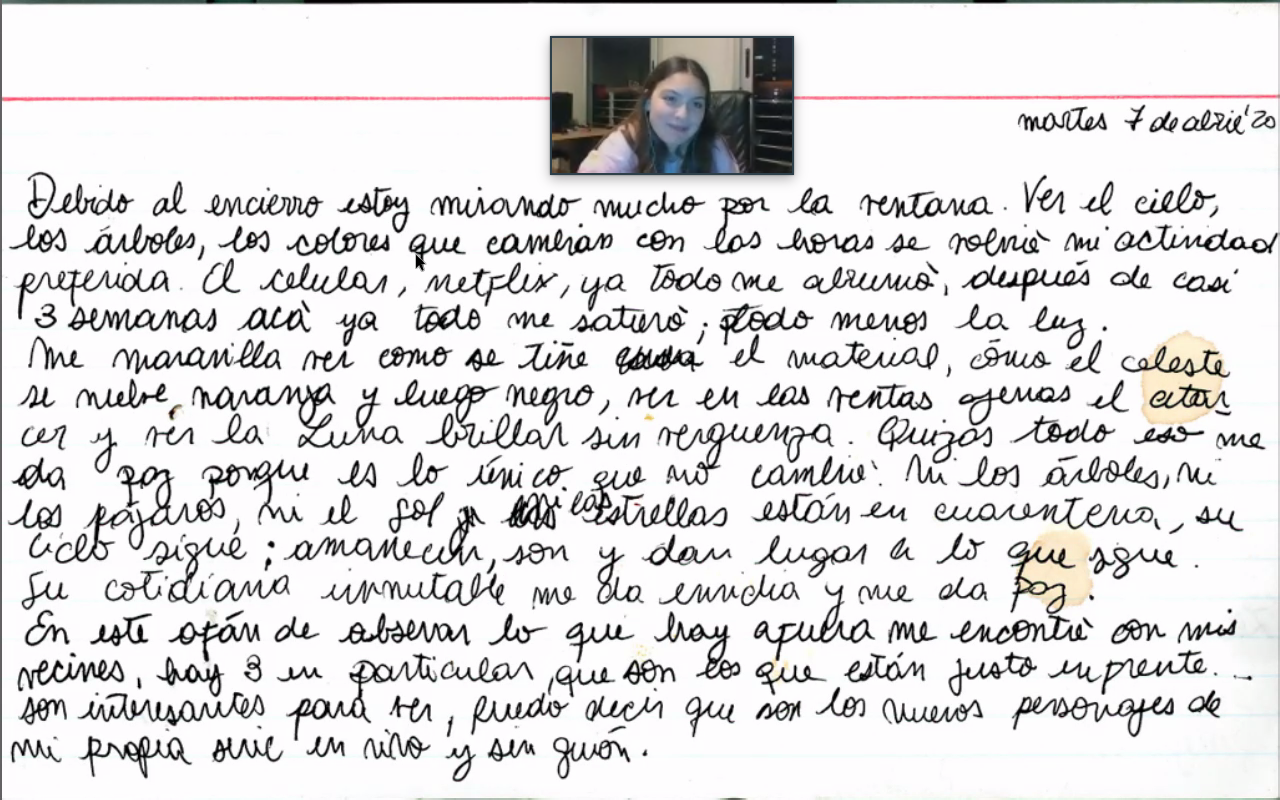 martes 7 de abril '20
Debido al encierro estoy mirando mucho por la ventana. Ver el cielo,
los árboles, los colores que cambian con las horas se volvió mi actividad
preferida. El celular, netflix, ya todo me abrumó, después de casi
3 semanas acá ya todo me saturó; todo menos la luz.
Me maravilla ver como se tiñe el material, cómo el celeste
se vuelve naranja y luego negro, ver en las ventas ajenas el atar
cer y ver la Luna brillar sin verguenza. Quizás todo eso me
da paz porque es lo único que no cambió. Ni los árboles, ni
los pájaros, ni el sol ni las estrellas están en cuarentena, su
ciclo sigue; amanecen, son y dan lugar a lo que sigue.
Su cotidiana inmutable me da envidia y me da paz.
En este afán de observar lo que hay afuera me encontré con mis
vecines, hay 3 en particular, que son los que están justo en frente...
son interesantes para ver, puedo decir que son los nuevos personajes de
mi propia serie en vivo y sin guión.